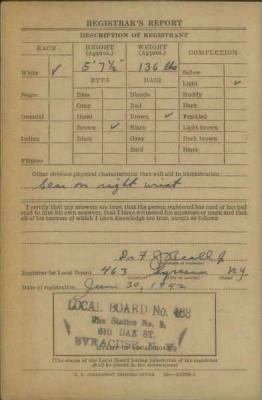 REGISTRAR'S REPORT
DESCRIPTION OF REGISTRANT
RACE HEIGHT (Approx.) WEIGHT (Approx.) COMPLEXION
White ✓ 5' 7½" 136 lbs Sallow
EYES HAIR Light ✓
Negro Blue Blonde Ruddy
Gray Red Dark
Oriental Hazel Brown ✓ Freckled
Brown ✓ Black Light brown
Indian Black Gray Dark brown
Bald Black
Filipino
Other obvious physical characteristics that will aid in identification
Scar on right wrist
I certify that my answers are true; that the person registered has read or has had
read to him his own answers; that I have witnessed his signature or mark and that
all of his answers of which I have knowledge are true, except as follows:
Registrar for Local Board 463 Syracuse N.Y.
Date of registration June 30, 1942
LOCAL BOARD No. 463
Fire Station No. 9,
610 OAK ST.
SYRACUSE, N. Y.
(STAMP OF LOCAL BOARD)
(The stamp of the Local Board having jurisdiction of the registrant
shall be placed in the above space)
U. S. GOVERNMENT PRINTING OFFICE